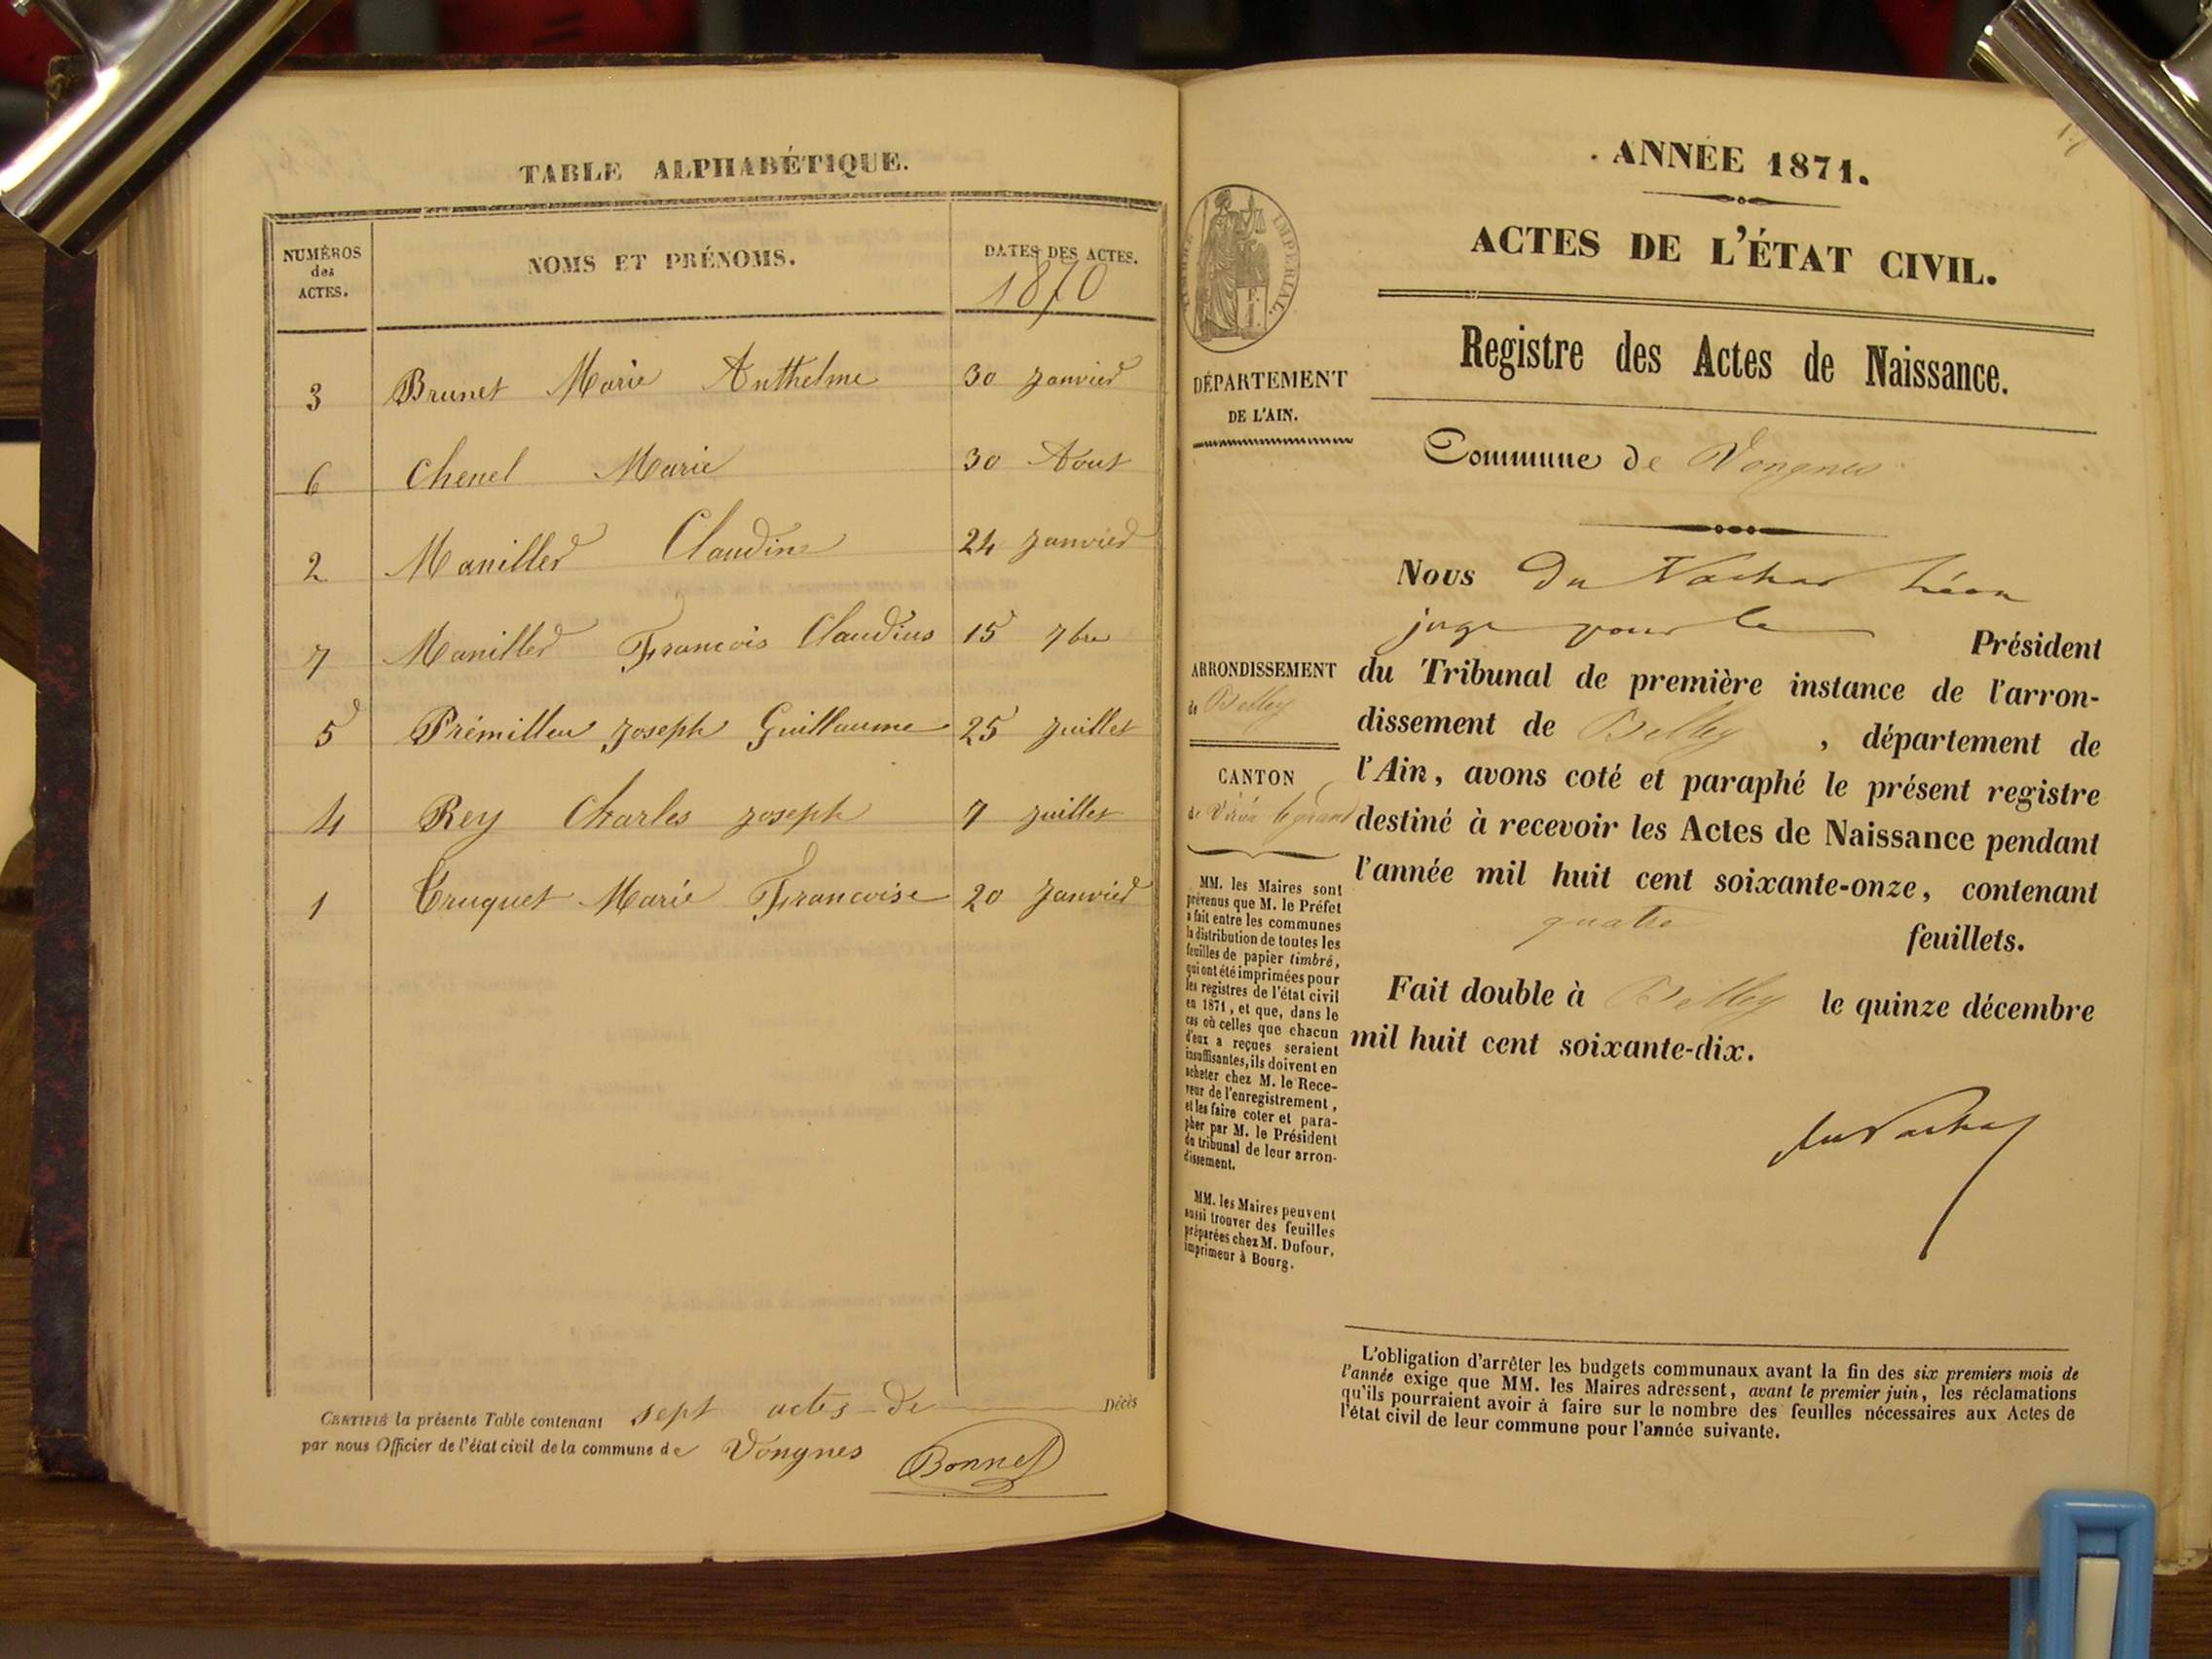 TABLE ALPHABÉTIQUE.
NUMÉROS des ACTES.
NOMS ET PRÉNOMS.
DATES DES ACTES.
1870
3 Brunet Marie Anthelme 30 Janvier
6 Chenel Marie 30 Aout
2 Maniller Claudine 24 Janvier
7 Maniller Francois Claudius 15 7bre
5 Prémilleu Joseph Guillaume 25 Juillet
4 Rey Charles Joseph 7 Juillet
1 Truquet Marie Francoise 20 Janvier
CERTIFIÉ la présente Table contenant sept actes de Décès
par nous Officier de l'état civil de la commune de Vongnes Bonnet
. ANNÉE 1871.
ACTES DE L'ÉTAT CIVIL.
Registre des Actes de Naissance.
IMPÉRIAL.
DÉPARTEMENT
DE L'AIN.
Commune de Vongnes
Nous Du Vachat Léon
juge pour le Président
du Tribunal de première instance de l'arron-
dissement de Belley, département de
l'Ain, avons coté et paraphé le présent registre
destiné à recevoir les Actes de Naissance pendant
l'année mil huit cent soixante-onze, contenant
quatre feuillets.
Fait double à Belley le quinze décembre
mil huit cent soixante-dix.
du Vachat
ARRONDISSEMENT
de Belley
CANTON
de Virieu le grand
MM. les Maires sont
prévenus que M. le Préfet
a fait entre les communes
la distribution de toutes les
feuilles de papier timbré,
qui ont été imprimées pour
les registres de l'état civil
en 1871, et que, dans le
cas où celles que chacun
d'eux a reçues seraient
insuffisantes, ils doivent en
acheter chez M. le Rece-
veur de l'enregistrement,
et les faire coter et para-
pher par M. le Président
du tribunal de leur arron-
dissement.
MM. les Maires peuvent
aussi trouver des feuilles
préparées chez M. Dufour,
imprimeur à Bourg.
L'obligation d'arrêter les budgets communaux avant la fin des six premiers mois de
l'année exige que MM. les Maires adressent, avant le premier juin, les réclamations
qu'ils pourraient avoir à faire sur le nombre des feuilles nécessaires aux Actes de
l'état civil de leur commune pour l'année suivante.